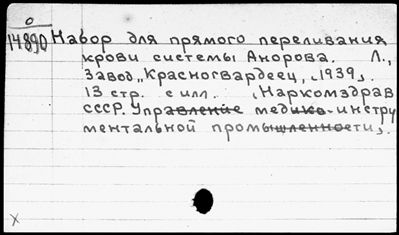 0
14890 Набор для прямого переливания
крови системы Анорова. Л.,
Завод „Красногвардеец, 1939.
13 стр. с илл. (Наркомздрав
СССР. Управление медико-инстру
ментальной промышленности).
X